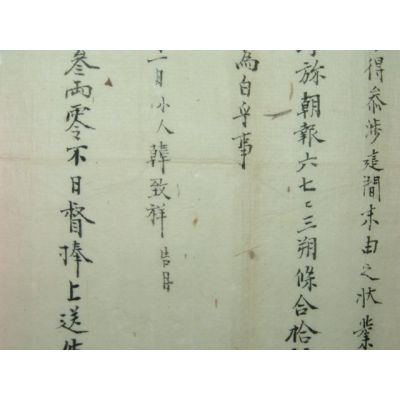 得叅涉這間未由之狀業
旀朝報六七〻三朔條合拾
爲白乎事
日小人韓致祥告目
叁兩零不日督捧上送